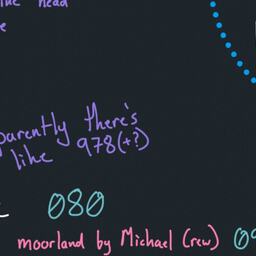 head
parently there's
like 978(+?)
080
moorland by Michael (rew)